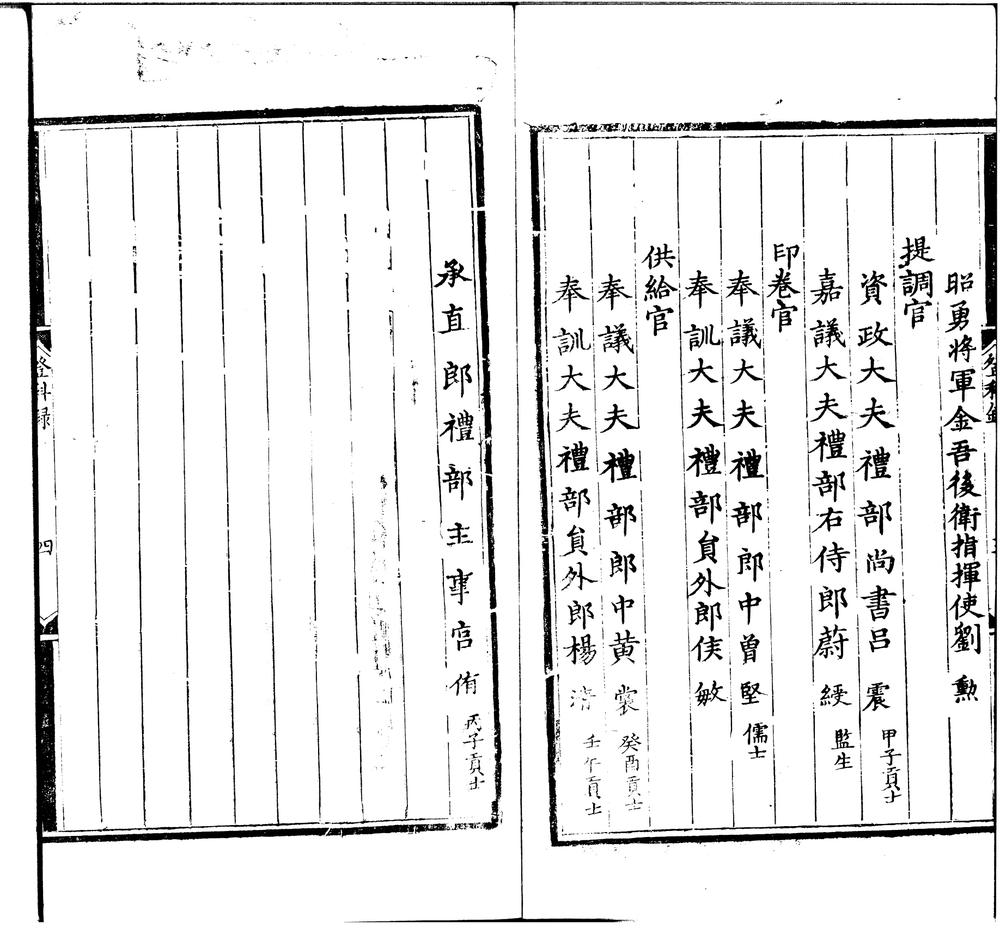 昭勇將軍金吾後衛指揮使劉勲
提調官
資政大夫禮部尚書呂震甲子貢士
嘉議大夫禮部右侍郎蔚綬監生
印卷官
奉議大夫禮部郎中曽堅儒士
奉訓大夫禮部貟外郎侯敏
供給官
奉議大夫禮部郎中黄裳癸酉貢士
奉訓大夫禮部貟外郎楊清壬午貢士
承直郎禮部主事宫侑丙子貢士
登科録
四